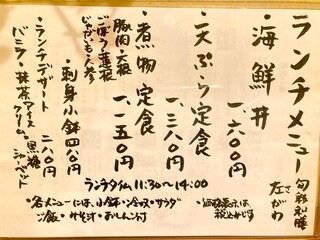 ランチメニュー
旬彩和膳
さ
左がわ
・海鮮丼
一、六〇〇円
・天ぷら定食
一、三八〇円
・煮物定食
一、一五〇円
豚肉・大根
ごぼう・蓮根
じゃがいも・人参
・刺身小鉢 四八〇円
・ランチデザート
二八〇円
バニラ・抹茶アイス
クリーム。黒糖
シャーベット
ランチタイム 11:30〜14:00
・各メニューには、小鉢・サラダ
・ご飯・みそ汁・おしんこ付